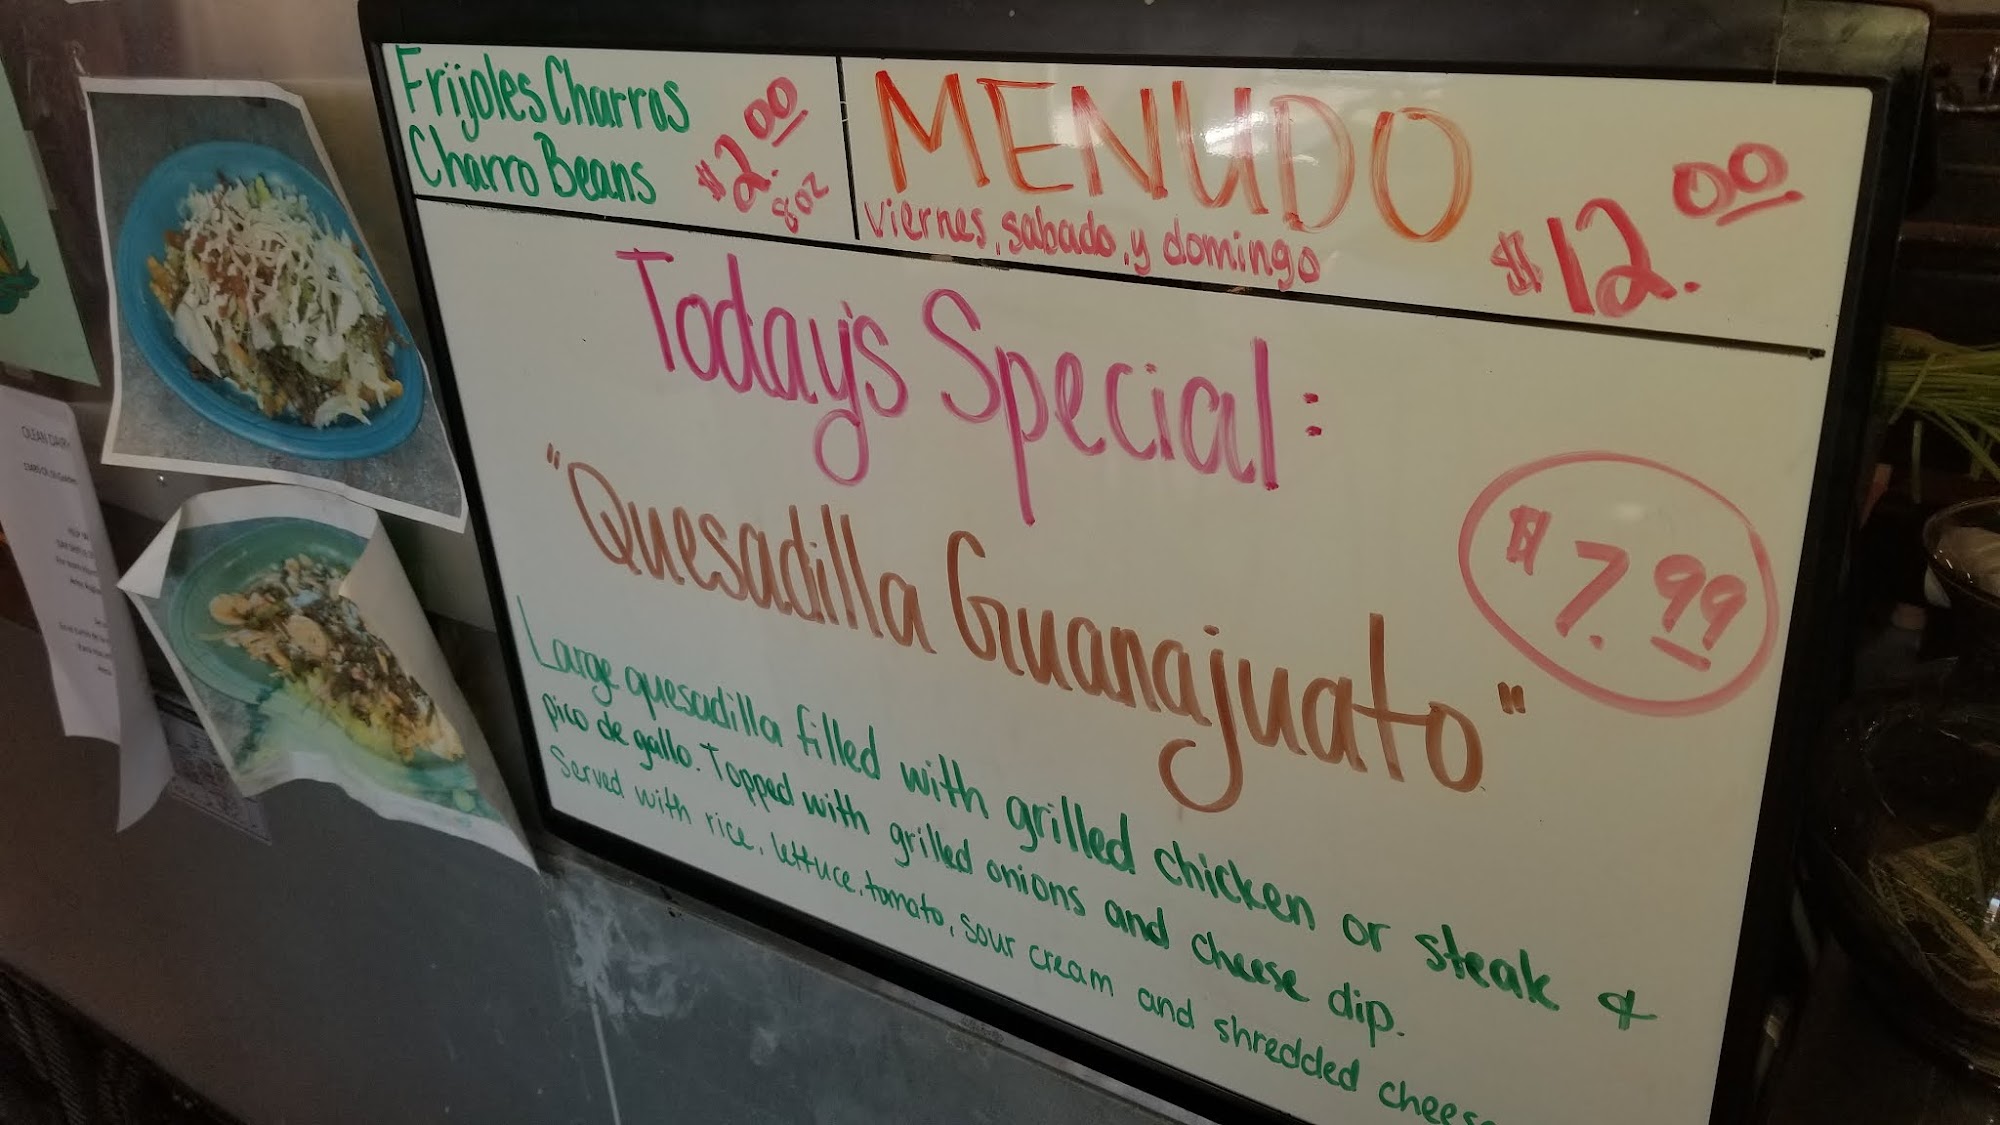 Frijoles Charros
Charro Beans
$2.00
8oz
MENUDO
viernes, sabado, y domingo
$12.00
Today's Special:
"Quesadilla Guanajuato"
$7.99
Large quesadilla filled with grilled chicken or steak &
pico de gallo. Topped with grilled onions and cheese dip.
Served with rice, lettuce, tomato, sour cream and shredded cheese